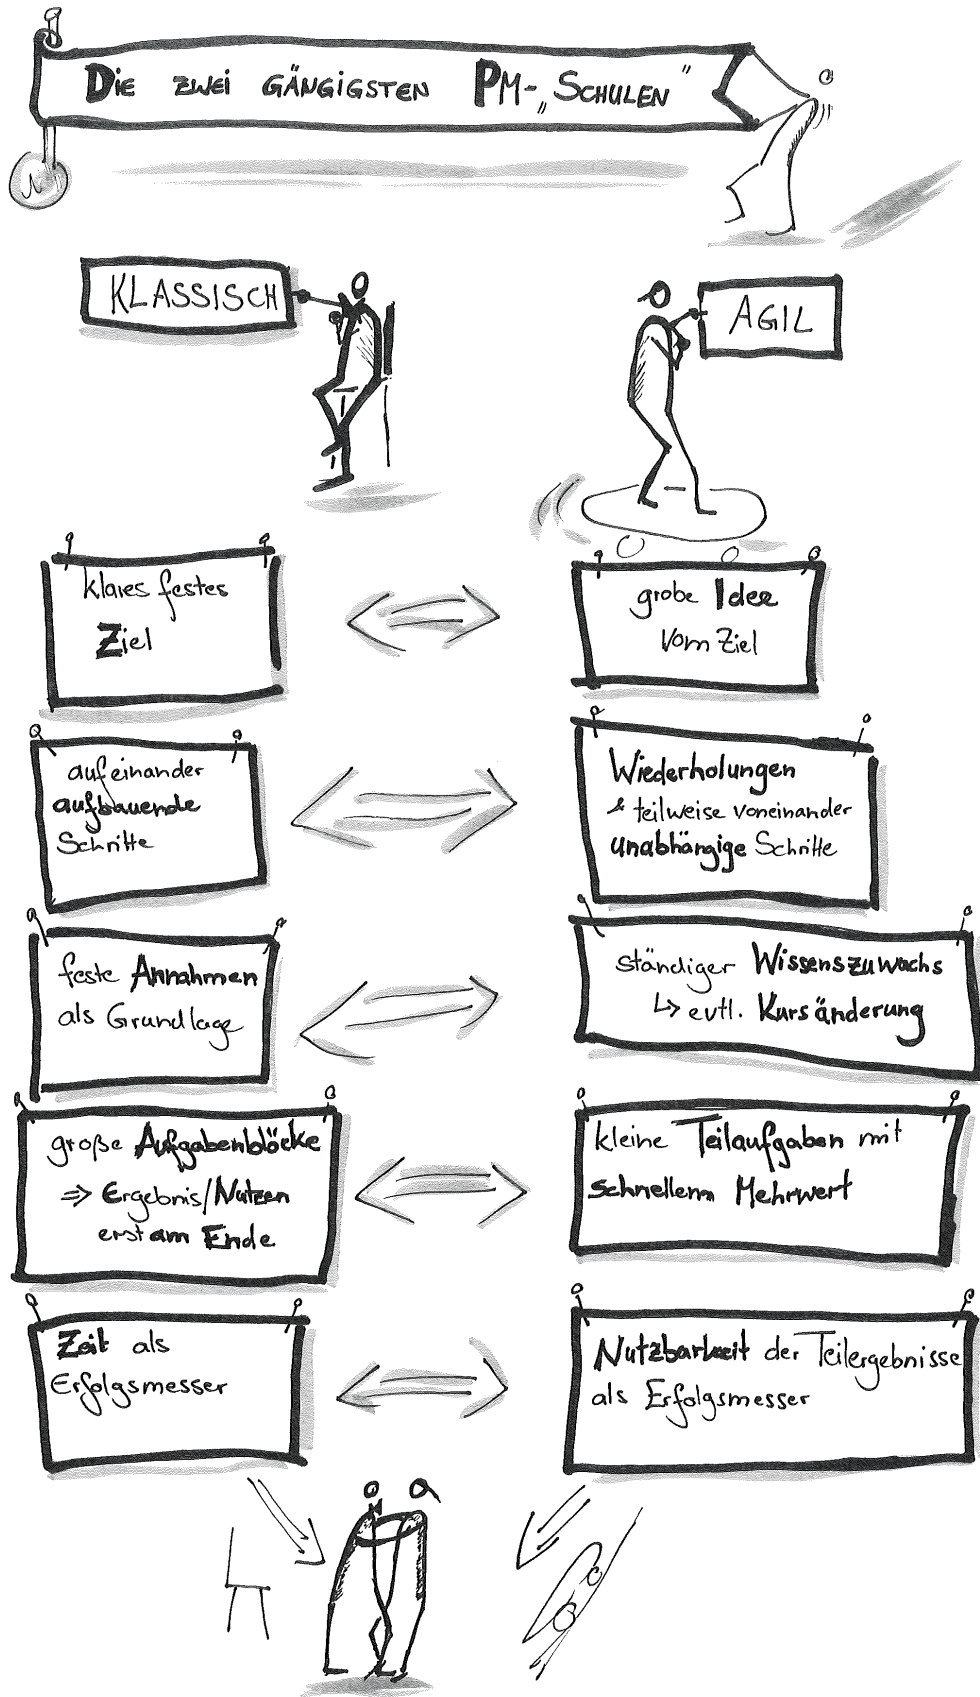 Die zwei gängigsten PM-„Schulen"
KLASSISCH
AGIL
klares festes
Ziel
grobe Idee
vom Ziel
aufeinander
aufbauende
Schritte
Wiederholungen
& teilweise voneinander
unabhängige Schritte
feste Annahmen
als Grundlage
ständiger Wissenszuwachs
↳ evtl. Kursänderung
große Aufgabenblöcke
⇒ Ergebnis/Nutzen
erst am Ende
kleine Teilaufgaben mit
schnellem Mehrwert
Zeit als
Erfolgsmesser
Nutzbarkeit der Teilergebnisse
als Erfolgsmesser